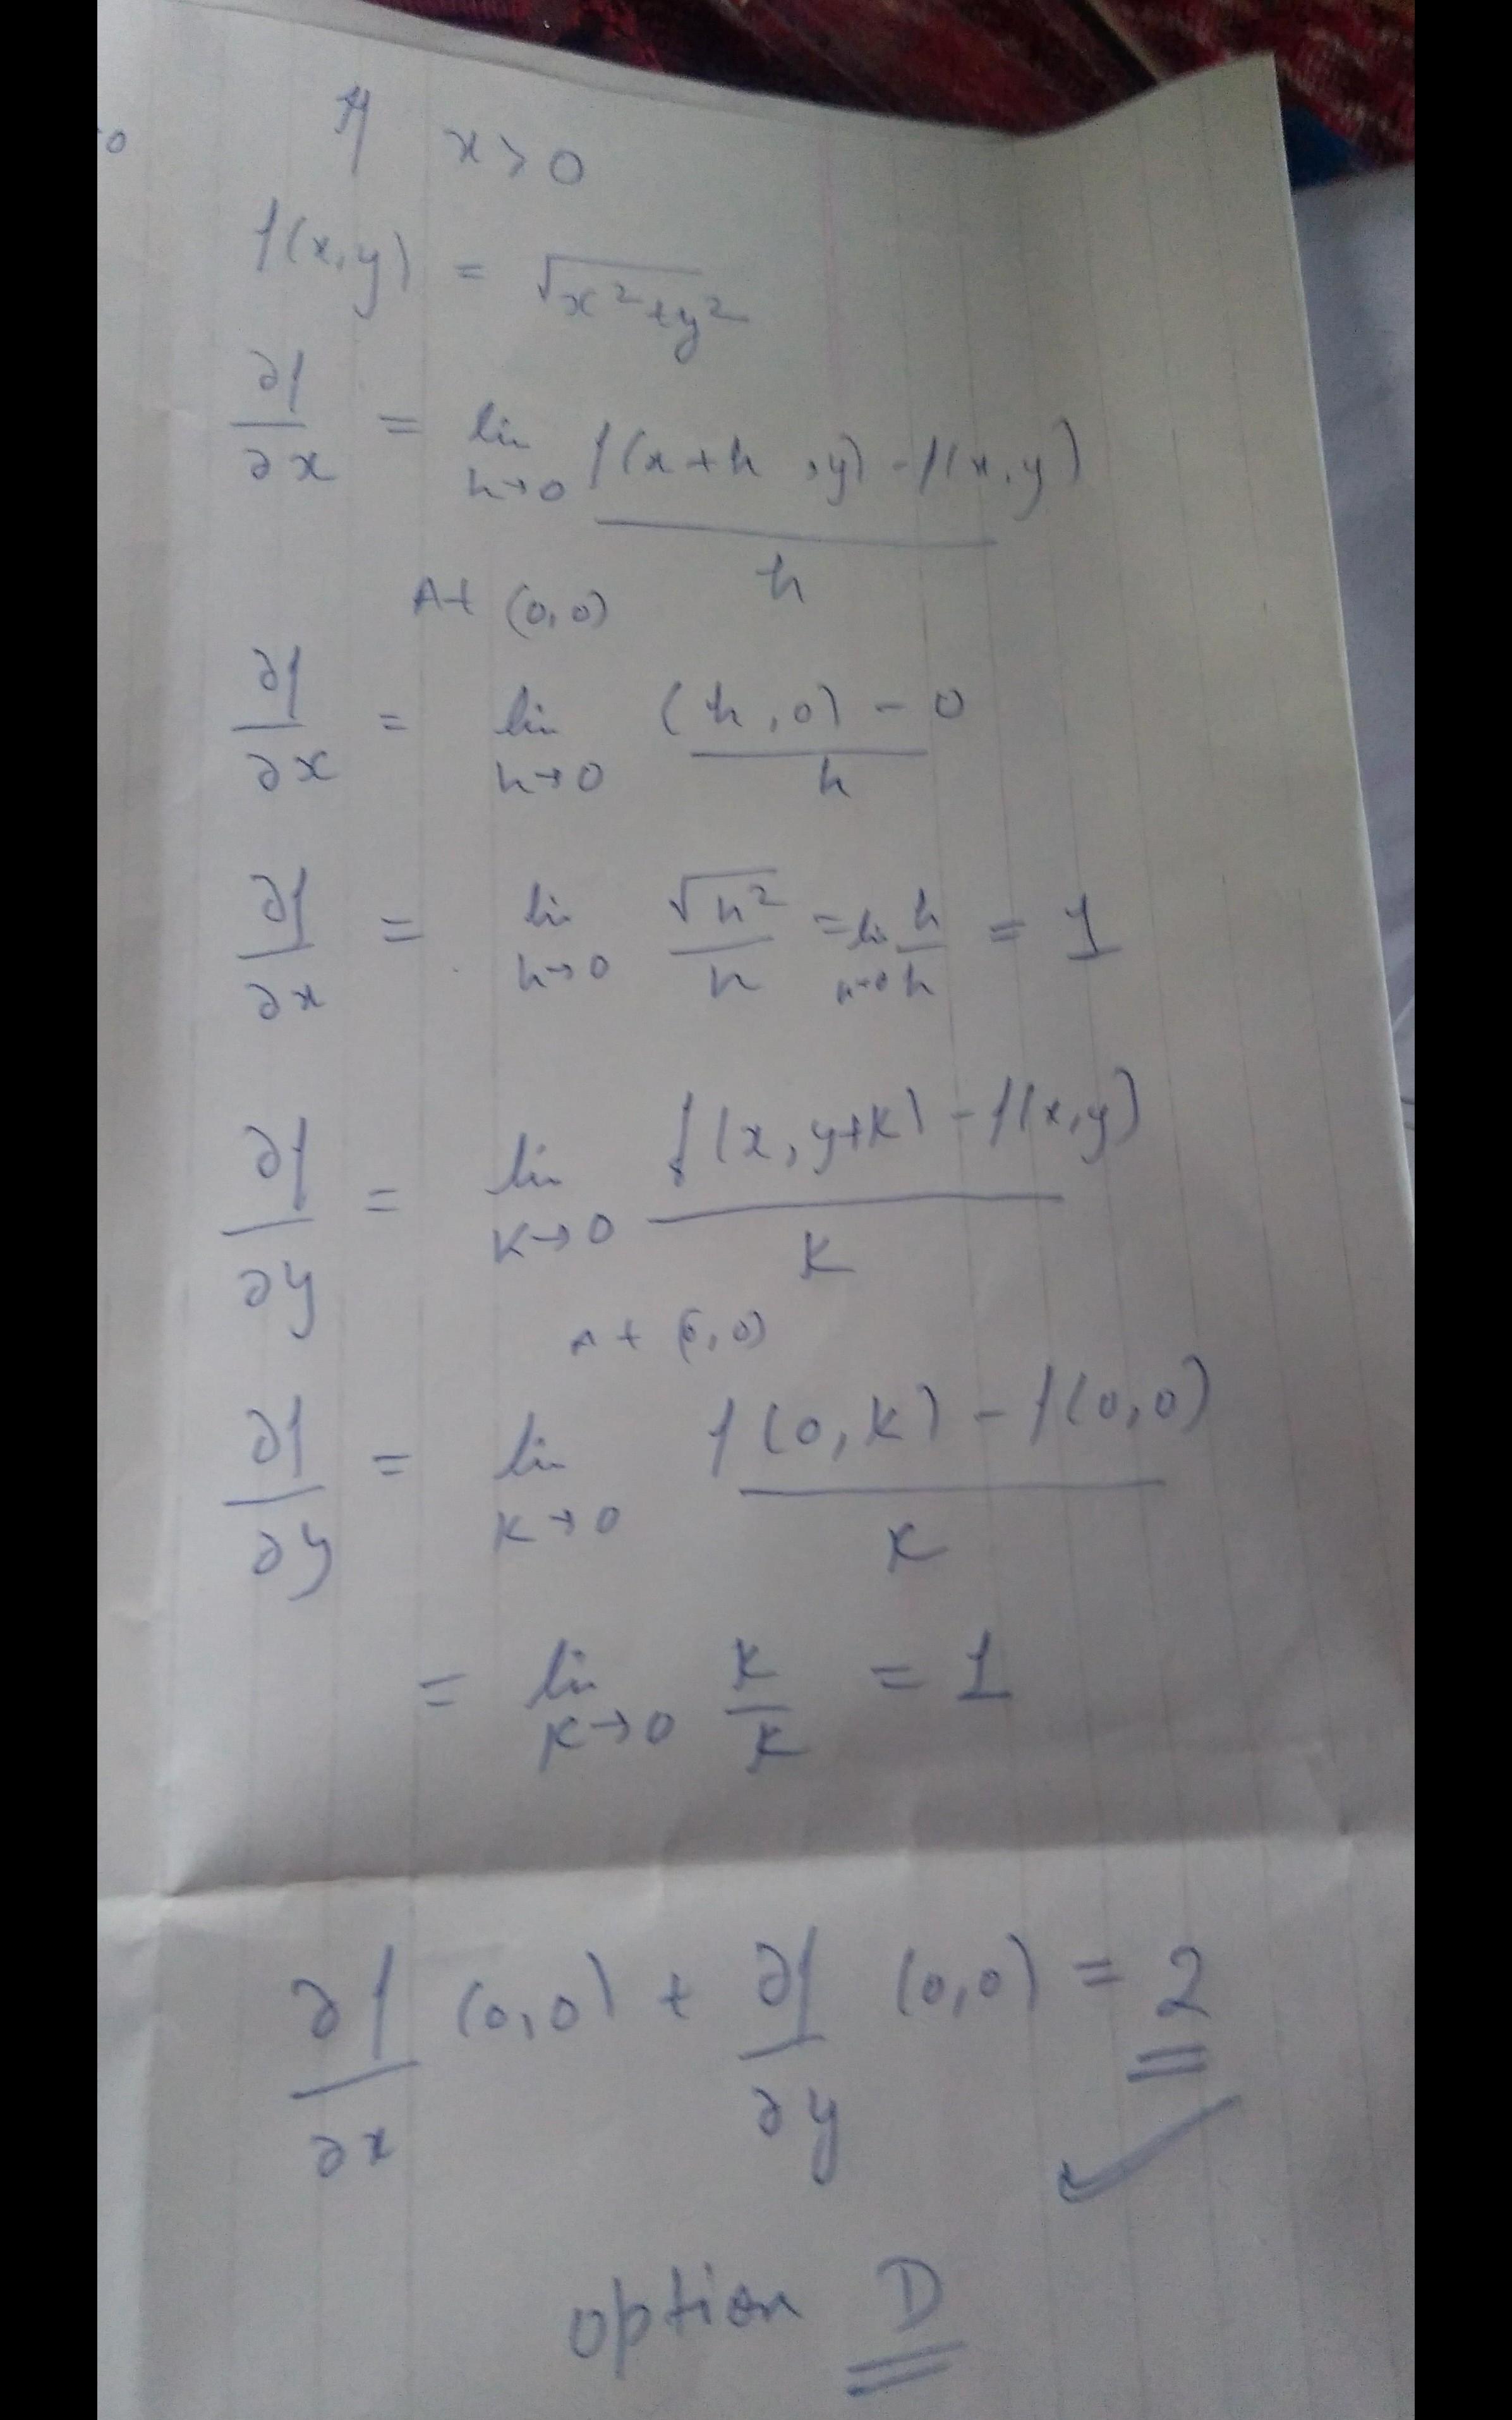 If x > 0
f(x,y) = √x²+y²
∂f/∂x = lim h→0 f(x+h, y) - f(x,y) / h
At (0,0)
∂f/∂x = lim h→0 (h, 0) - 0 / h
∂f/∂x = lim h→0 √h² / h = lim h→0 h/h = 1
∂f/∂y = lim K→0 f(x, y+K) - f(x,y) / K
At (0,0)
∂f/∂y = lim K→0 f(0, K) - f(0,0) / K
= lim K→0 K/K = 1
∂f/∂x (0,0) + ∂f/∂y (0,0) = 2
option D